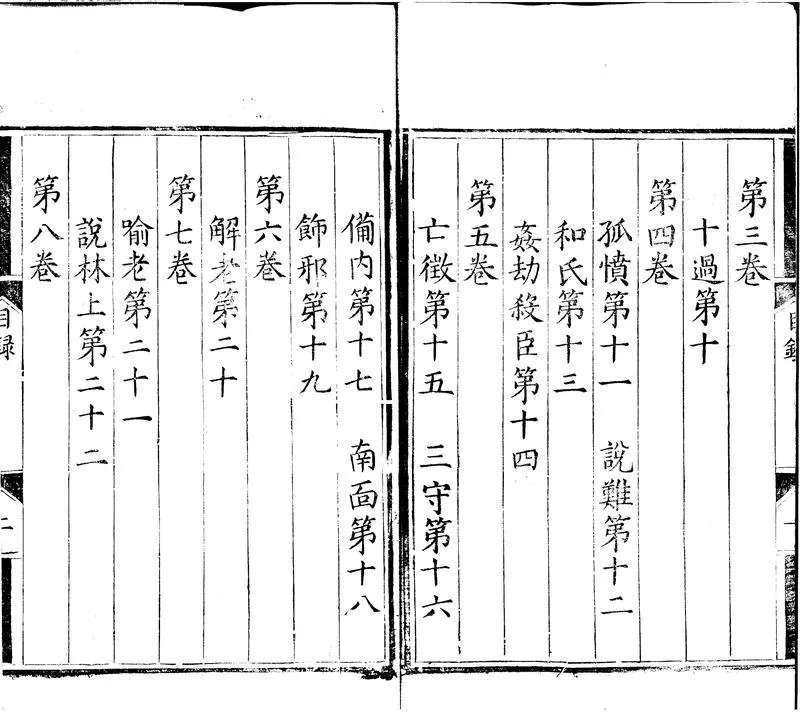 第三卷
十過第十
第四卷
孤憤第十一　說難第十二
和氏第十三
姦劫殺臣第十四
第五卷
亡徵第十五　三守第十六
備內第十七　南面第十八
飾邪第十九
第六卷
解老第二十
第七卷
喻老第二十一
說林上第二十二
第八卷
目録
二